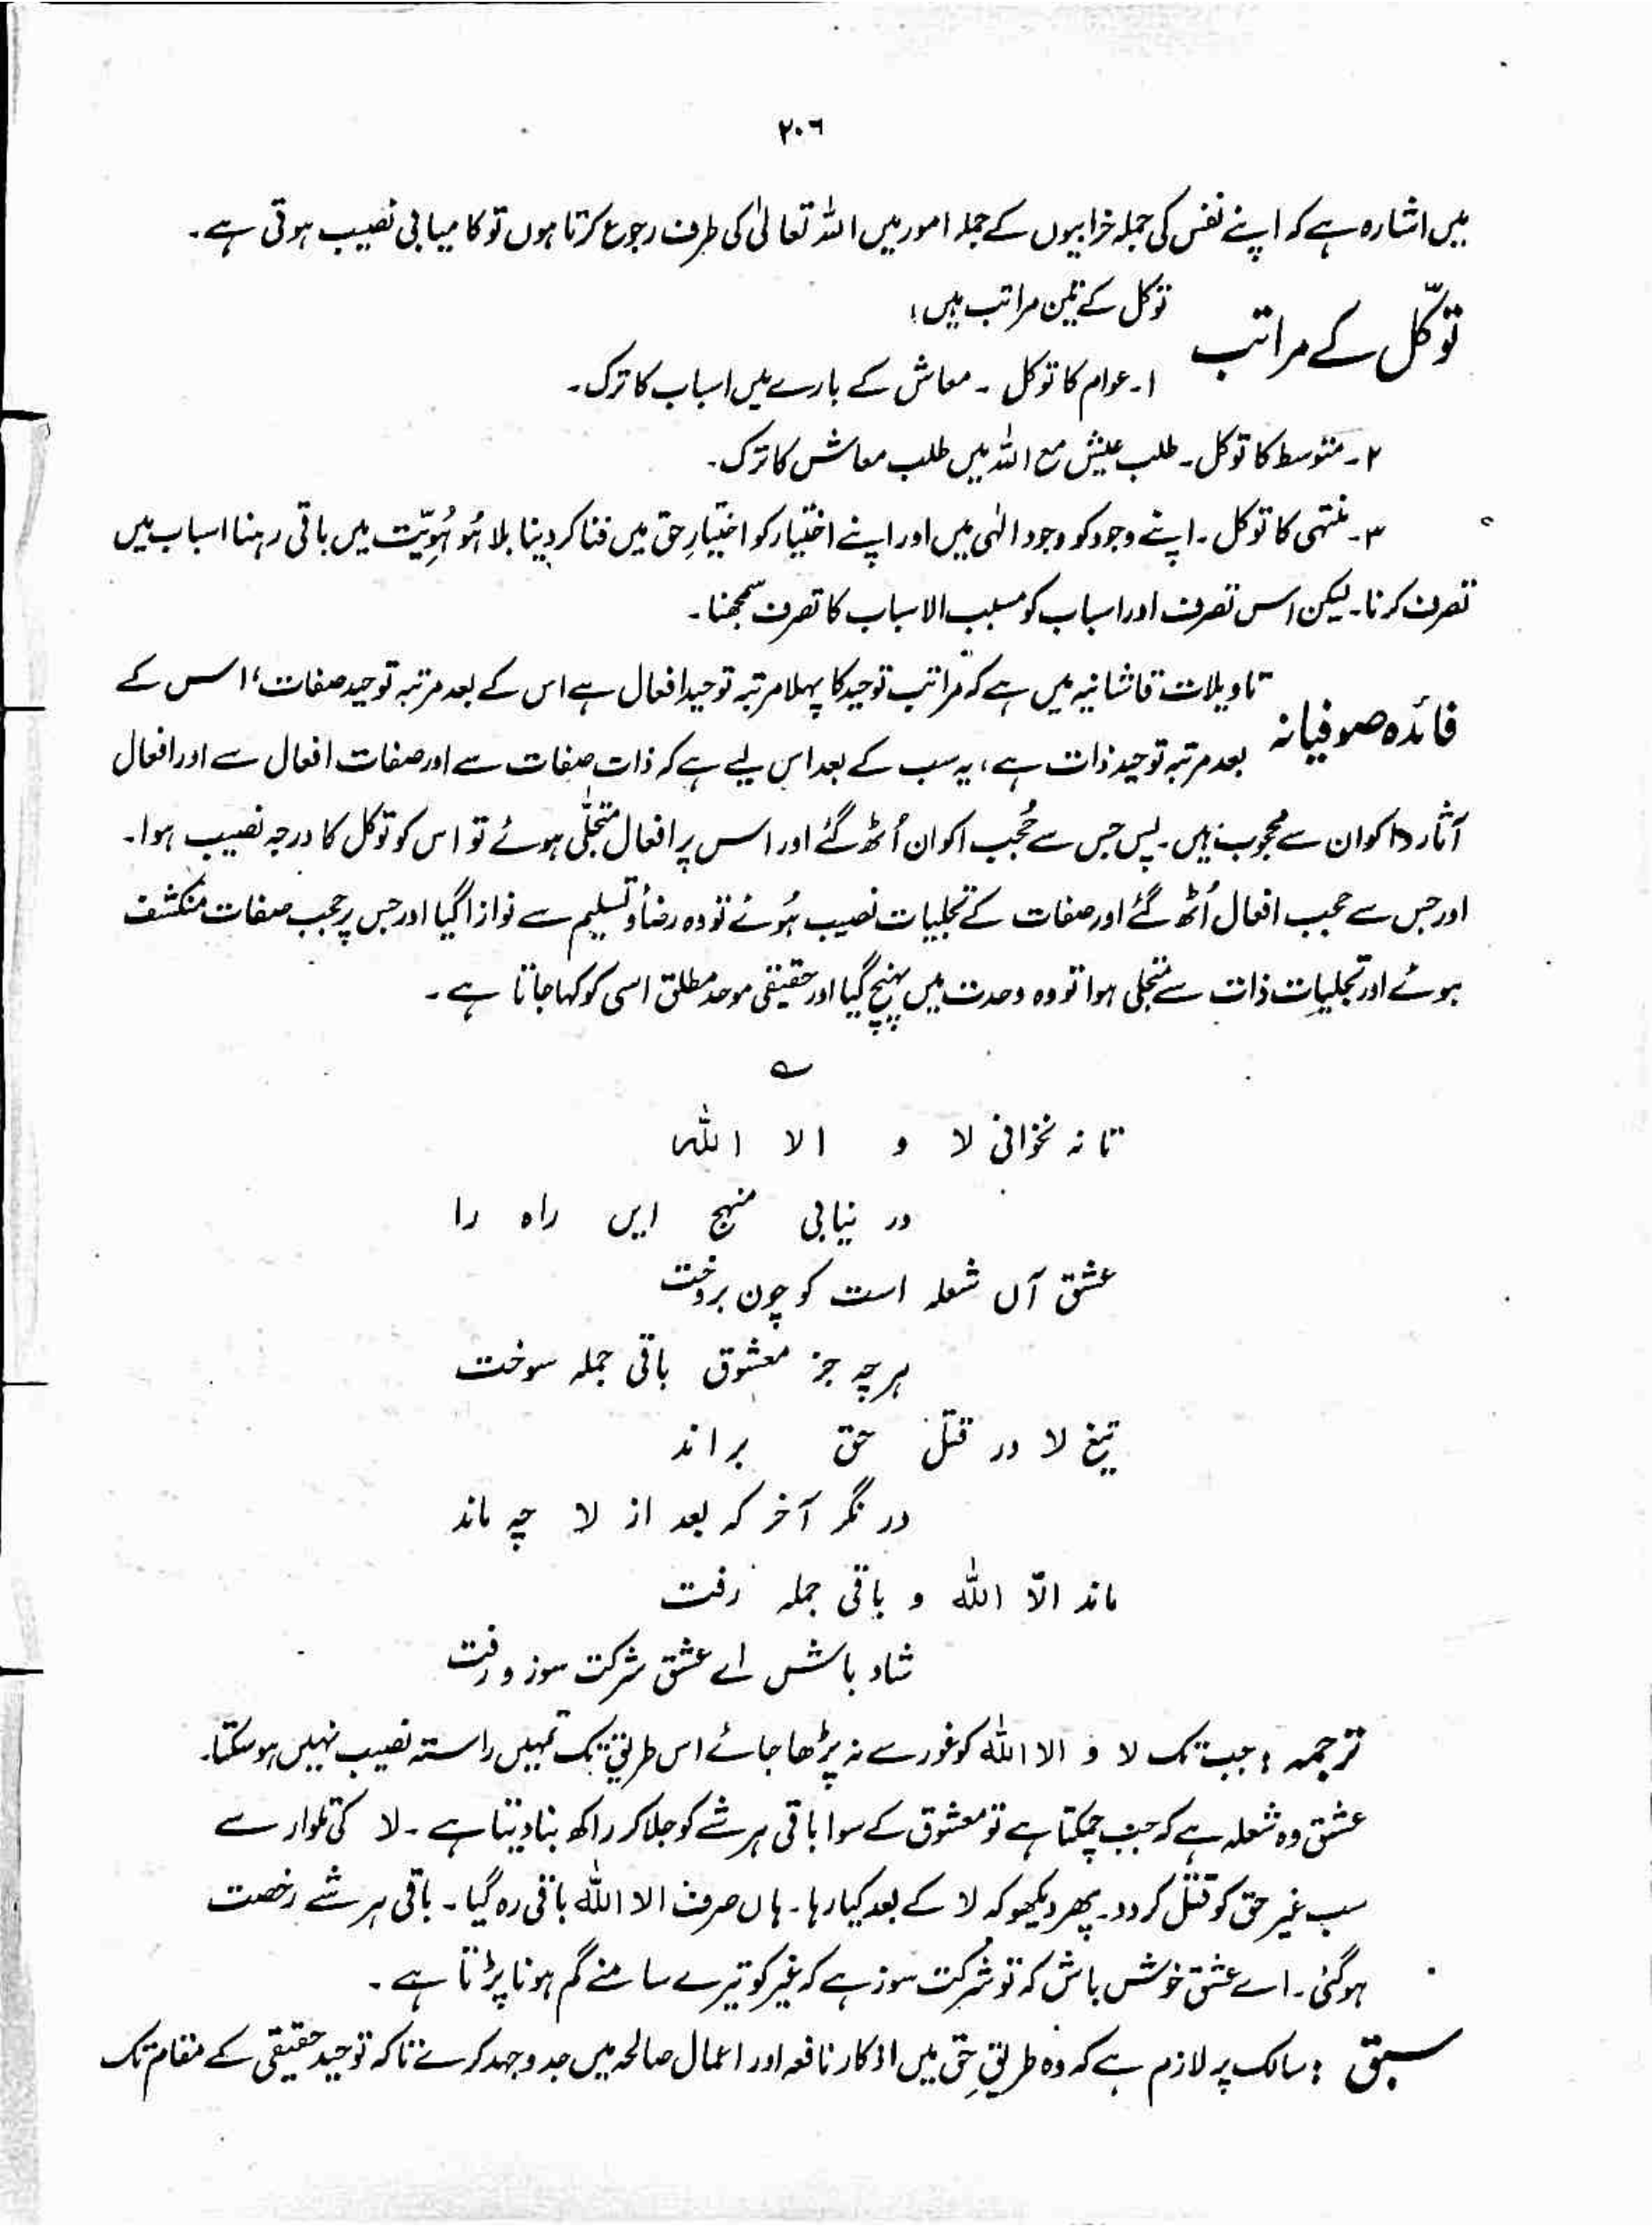 ۲۰۶
میں اشارہ ہے کہ اپنے نفس کی جملہ خرابیوں کے جملہ امور میں اللہ تعالیٰ کی طرف رجوع کرتا ہوں تو کامیابی نصیب ہوتی ہے۔
توکّل کے مراتب
توکل کے تین مراتب ہیں:
۱۔ عوام کا توکل ۔ معاش کے بارے میں اسباب کا ترک۔
۲۔ متوسط کا توکل۔ طلب عیش مع اللہ میں طلب معاش کا ترک۔
۳۔ منتہی کا توکل۔ اپنے وجود کو وجود الٰہی میں اور اپنے اختیار کو اختیارِ حق میں فنا کر دینا بلا ہُو ہُوِیّت میں باقی رہنا اسباب میں
تصرف کرنا۔ لیکن اس تصرف اور اسباب کو مسبب الاسباب کا تصرف سمجھنا۔
فائدہ صوفیانہ
تاویلات قاشانیہ میں ہے کہ مراتب توحید کا پہلا مرتبہ توحید افعال ہے اس کے بعد مرتبہ توحید صفات، اس کے
بعد مرتبہ توحید ذات ہے، یہ سب کے بعد اس لیے ہے کہ ذات صفات سے اور صفات افعال سے اور افعال
آثار و اکوان سے محجوب ہیں۔ پس جس سے حُجب اکوان اُٹھ گئے اور اس پر افعال متجلّی ہوئے تو اس کو توکل کا درجہ نصیب ہوا۔
اور جس سے حجب افعال اُٹھ گئے اور صفات کے تجلیات نصیب ہُوئے تو وہ رضأ و تسلیم سے نوازا گیا اور جس پر حجب صفات منکشف
ہوئے اور تجلیات ذات سے متجلی ہوا تو وہ وحدت میں پہنچ گیا اور حقیقی موحد مطلق اسی کو کہا جاتا ہے۔
؎
تا نہ نخوانی لا و الا اللہ
در نیابی منہج ایں راہ را
عشق آں شعلہ است کو چون بروخت
ہر چہ جز معشوق باقی جملہ سوخت
تیغ لا در قتل حق براند
در نگر آخر کہ بعد از لا چہ ماند
ماند الّا اللہ و باقی جملہ رفت
شاد باش اے عشق شرکت سوز و رفت
ترجمہ : جب تک لا و الا اللہ کو غور سے نہ پڑھا جائے اس طریق تک تمہیں راستہ نصیب نہیں ہو سکتا۔
عشق وہ شعلہ ہے کہ جب چمکتا ہے تو معشوق کے سوا باقی ہر شے کو جلا کر راکھ بنا دیتا ہے۔ لا کی تلوار سے
سب غیر حق کو قتل کر دو۔ پھر دیکھو کہ لا کے بعد کیا رہا۔ ہاں صرف الا اللہ باقی رہ گیا۔ باقی ہر شے رخصت
ہوگئی۔ اے عشق خوش باش کہ تو شرکت سوز ہے کہ غیر کو تیرے سامنے گم ہونا پڑتا ہے۔
سبق : سالک پر لازم ہے کہ وہ طریقِ حق میں اذکار نافعہ اور اعمال صالحہ میں جدوجہد کرے تاکہ توحید حقیقی کے مقام تک